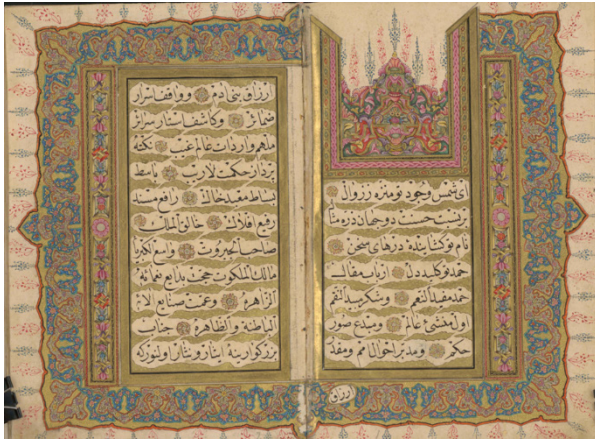 ای شمس وجود تو منزه ز زوال
حسنت دو جهان ذره مثال
نام تو کشاینده درهای سخن
حمد تو کلید در ارباب مقال
حمد مفید النعم و شکر مبید النقم
اول منشئ عالم و مبدع صور
حکم و مدبر احوال امم و مقدر
ارزاق بنی آدم و واقف اسرار
ضمائر و کاشف استار سرائر
ملهم واردات عالم غیب نکته
پرداز حکمت لاریب باسط
بساط معبد خاک رافع مسند
رفیع افلاک خالق الملک
صاحب الجبروت واسع الکبریا
مالک الملکوت بدایع نعمائه
الزاهره وعمت صنایع آلائه
الباطنة والظاهرة جناب
بزرکوارینه ایثار و نثار اولنور که